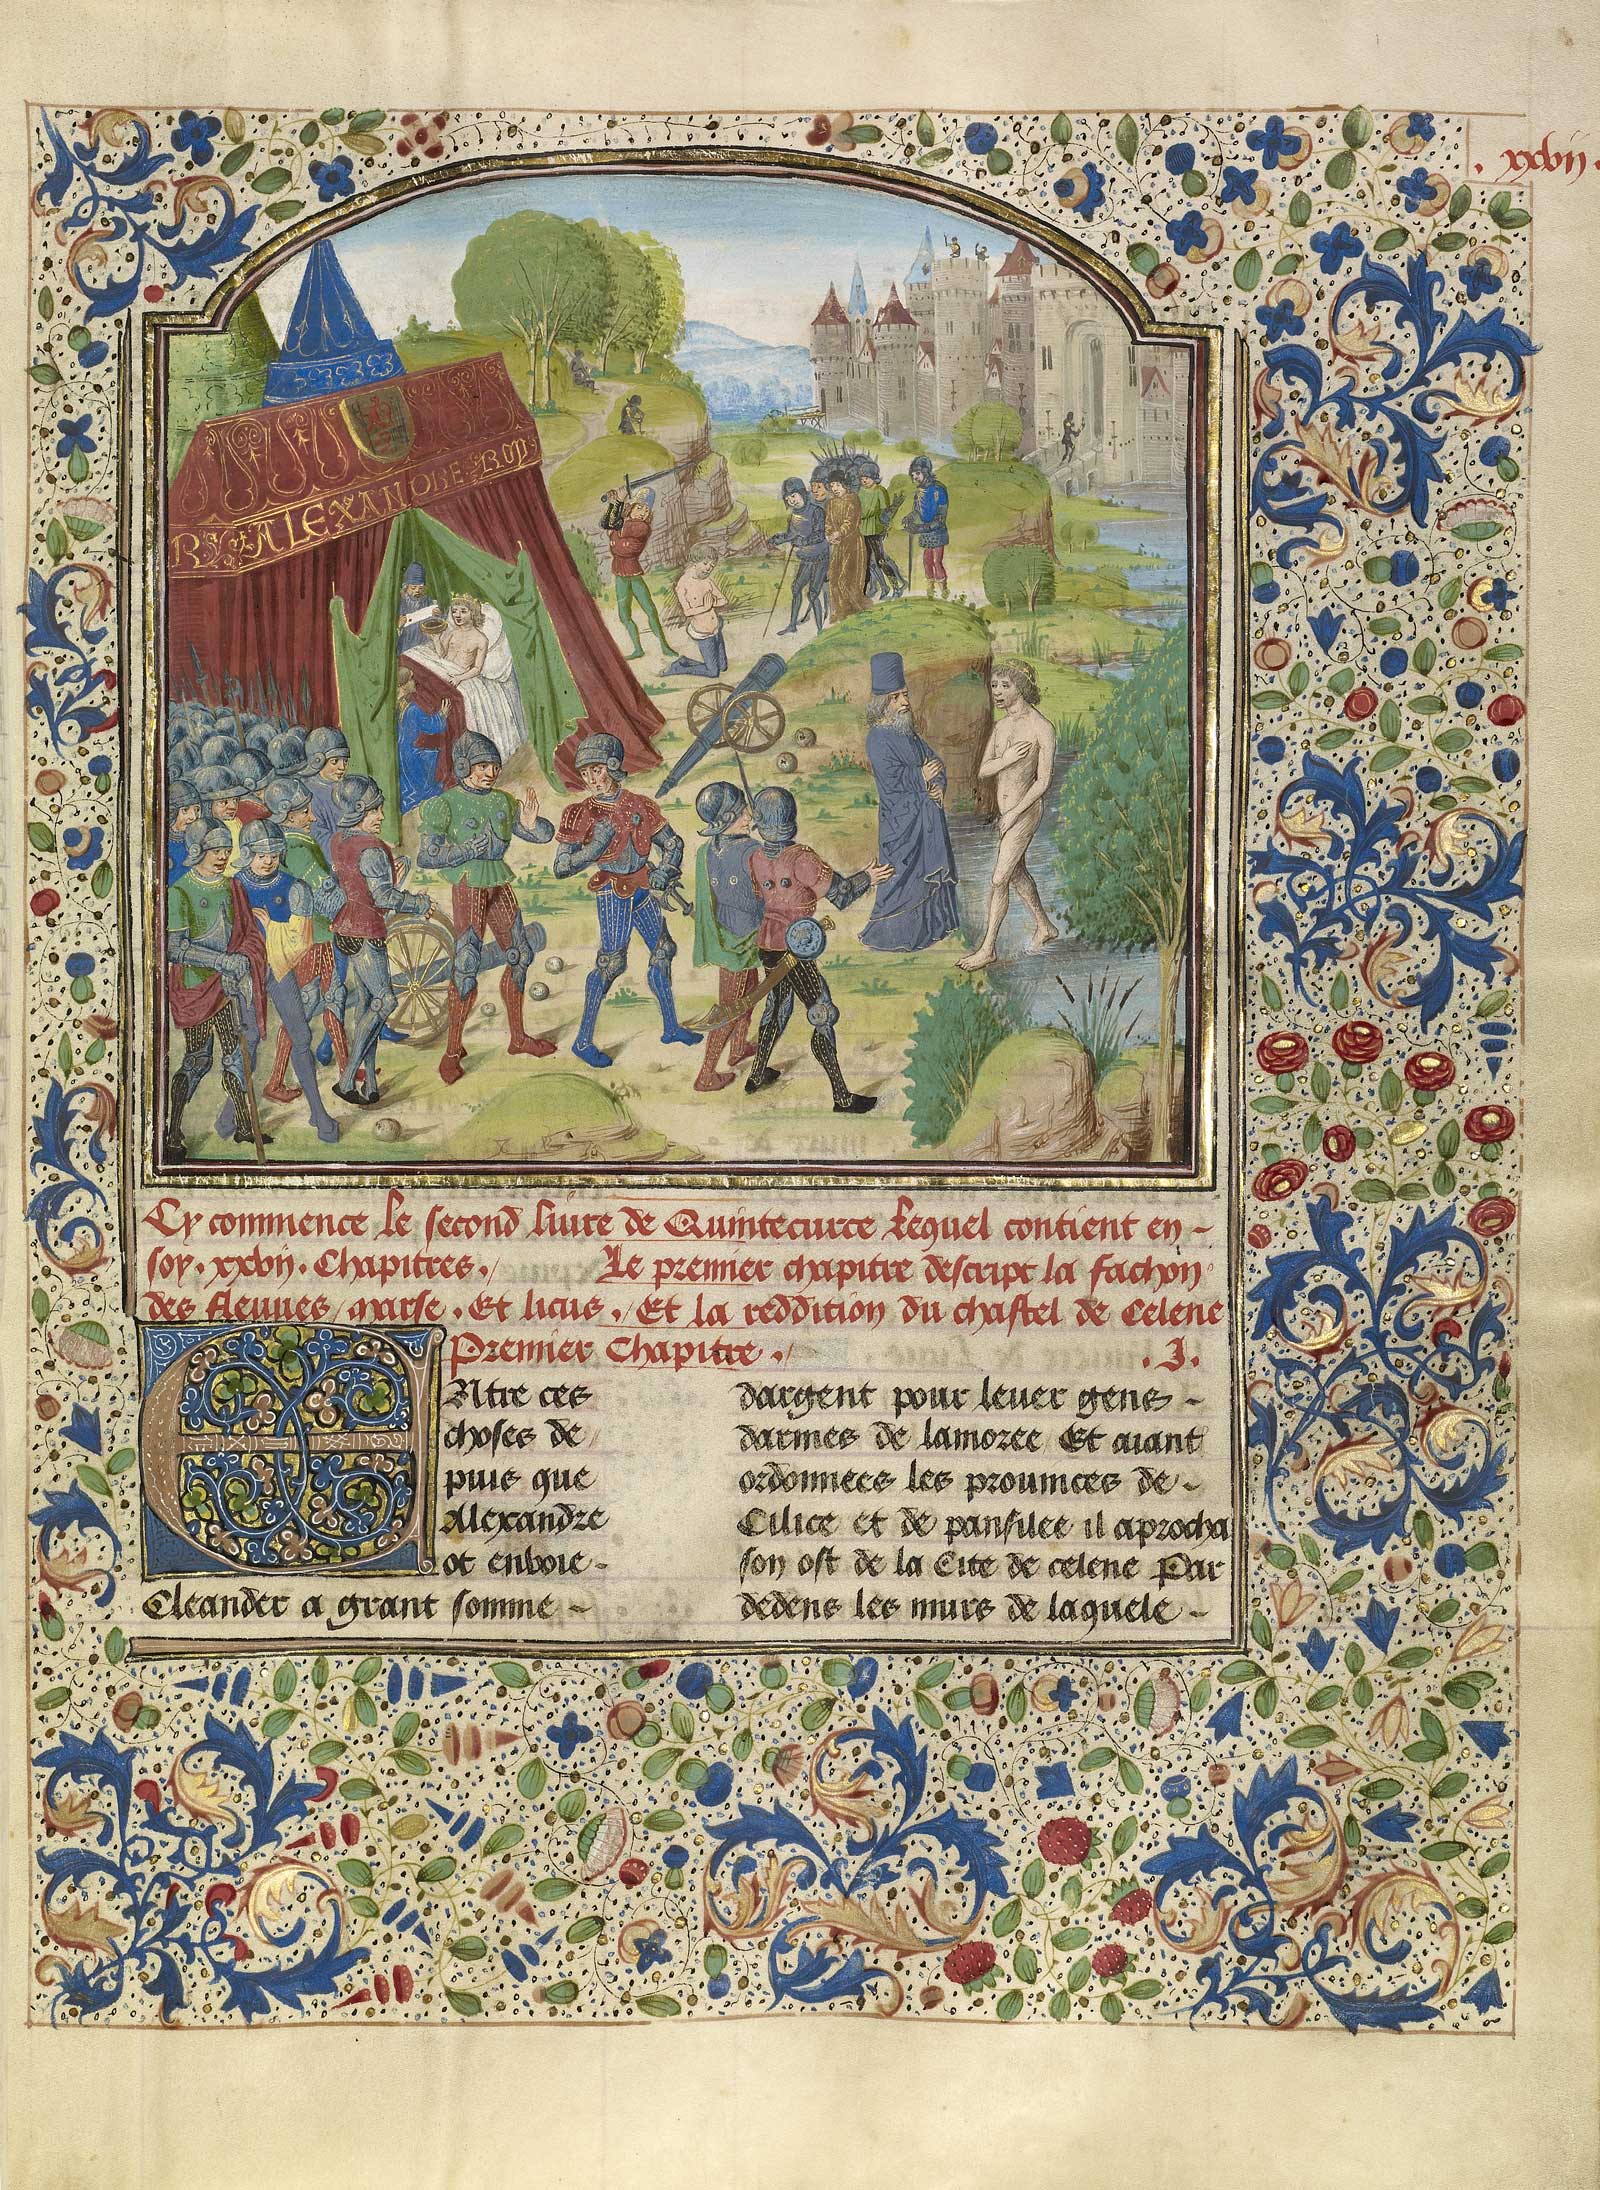 .xxvij.
ALEXANDRE ROY
Cy commence le second livre de Quintecurce lequel contient en -
soy .xxvij. Chapitres. Le premier chapitre descript la fachon
des fleuves marse . Et licus . Et la reddition du chastel de Celene
Premier Chapitre . .I.
Entre ces
choses de
puis que
Alexandre
ot envoie -
Cleander a grant somme -
dargent pour lever gens -
darmes de lamoree Et aiant
ordonnees les provinces de -
Cilice et de panfilee il aprocha
son ost de la Cite de celene Par
dedens les murs de laquele -